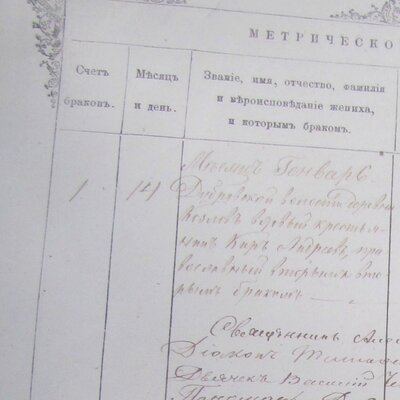 МЕТРИЧЕСКО
Счетъ
браковъ.
Мѣсяцъ
и день.
Званіе, имя, отчество, фамилія
и вѣроисповѣданіе жениха,
и которымъ бракомъ.
Мѣсяцъ Генварь
1
14
Дубровской волости деревни
вдовый крестья-
нинъ Киръ Андреевъ, пра
вославный вторымъ
бракомъ
Священникъ
Діаконъ
Дьячекъ Василій
Пономарь